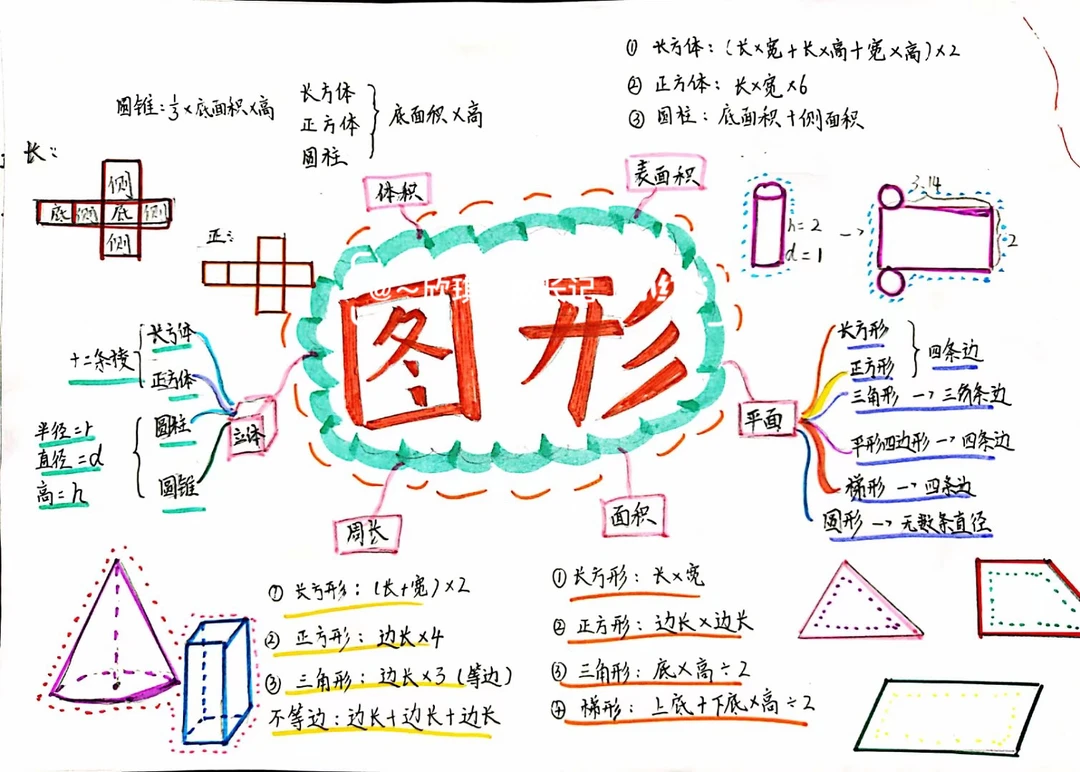 ① 长方体：(长×宽+长×高+宽×高)×2
② 正方体：长×宽×6
③ 圆柱：底面积+侧面积
圆锥：1/3×底面积×高
长方体
正方体
圆柱
底面积×高
体积
表面积
长：
侧
底 侧 底 侧
侧
正：
3.14
h=2
d=1
2
图形
十二条棱
长方体
正方体
圆柱
圆锥
半径=r
直径=d
高=h
立体
平面
长方形
正方形
四条边
三角形→三角条边
平形四边形→四条边
梯形→四条边
圆形→无数条直径
周长
面积
① 长方形：(长+宽)×2
② 正方形：边长×4
③ 三角形：边长×3(等边)
不等边：边长+边长+边长
① 长方形：长×宽
② 正方形：边长×边长
③ 三角形：底×高÷2
④ 梯形：上底+下底×高÷2